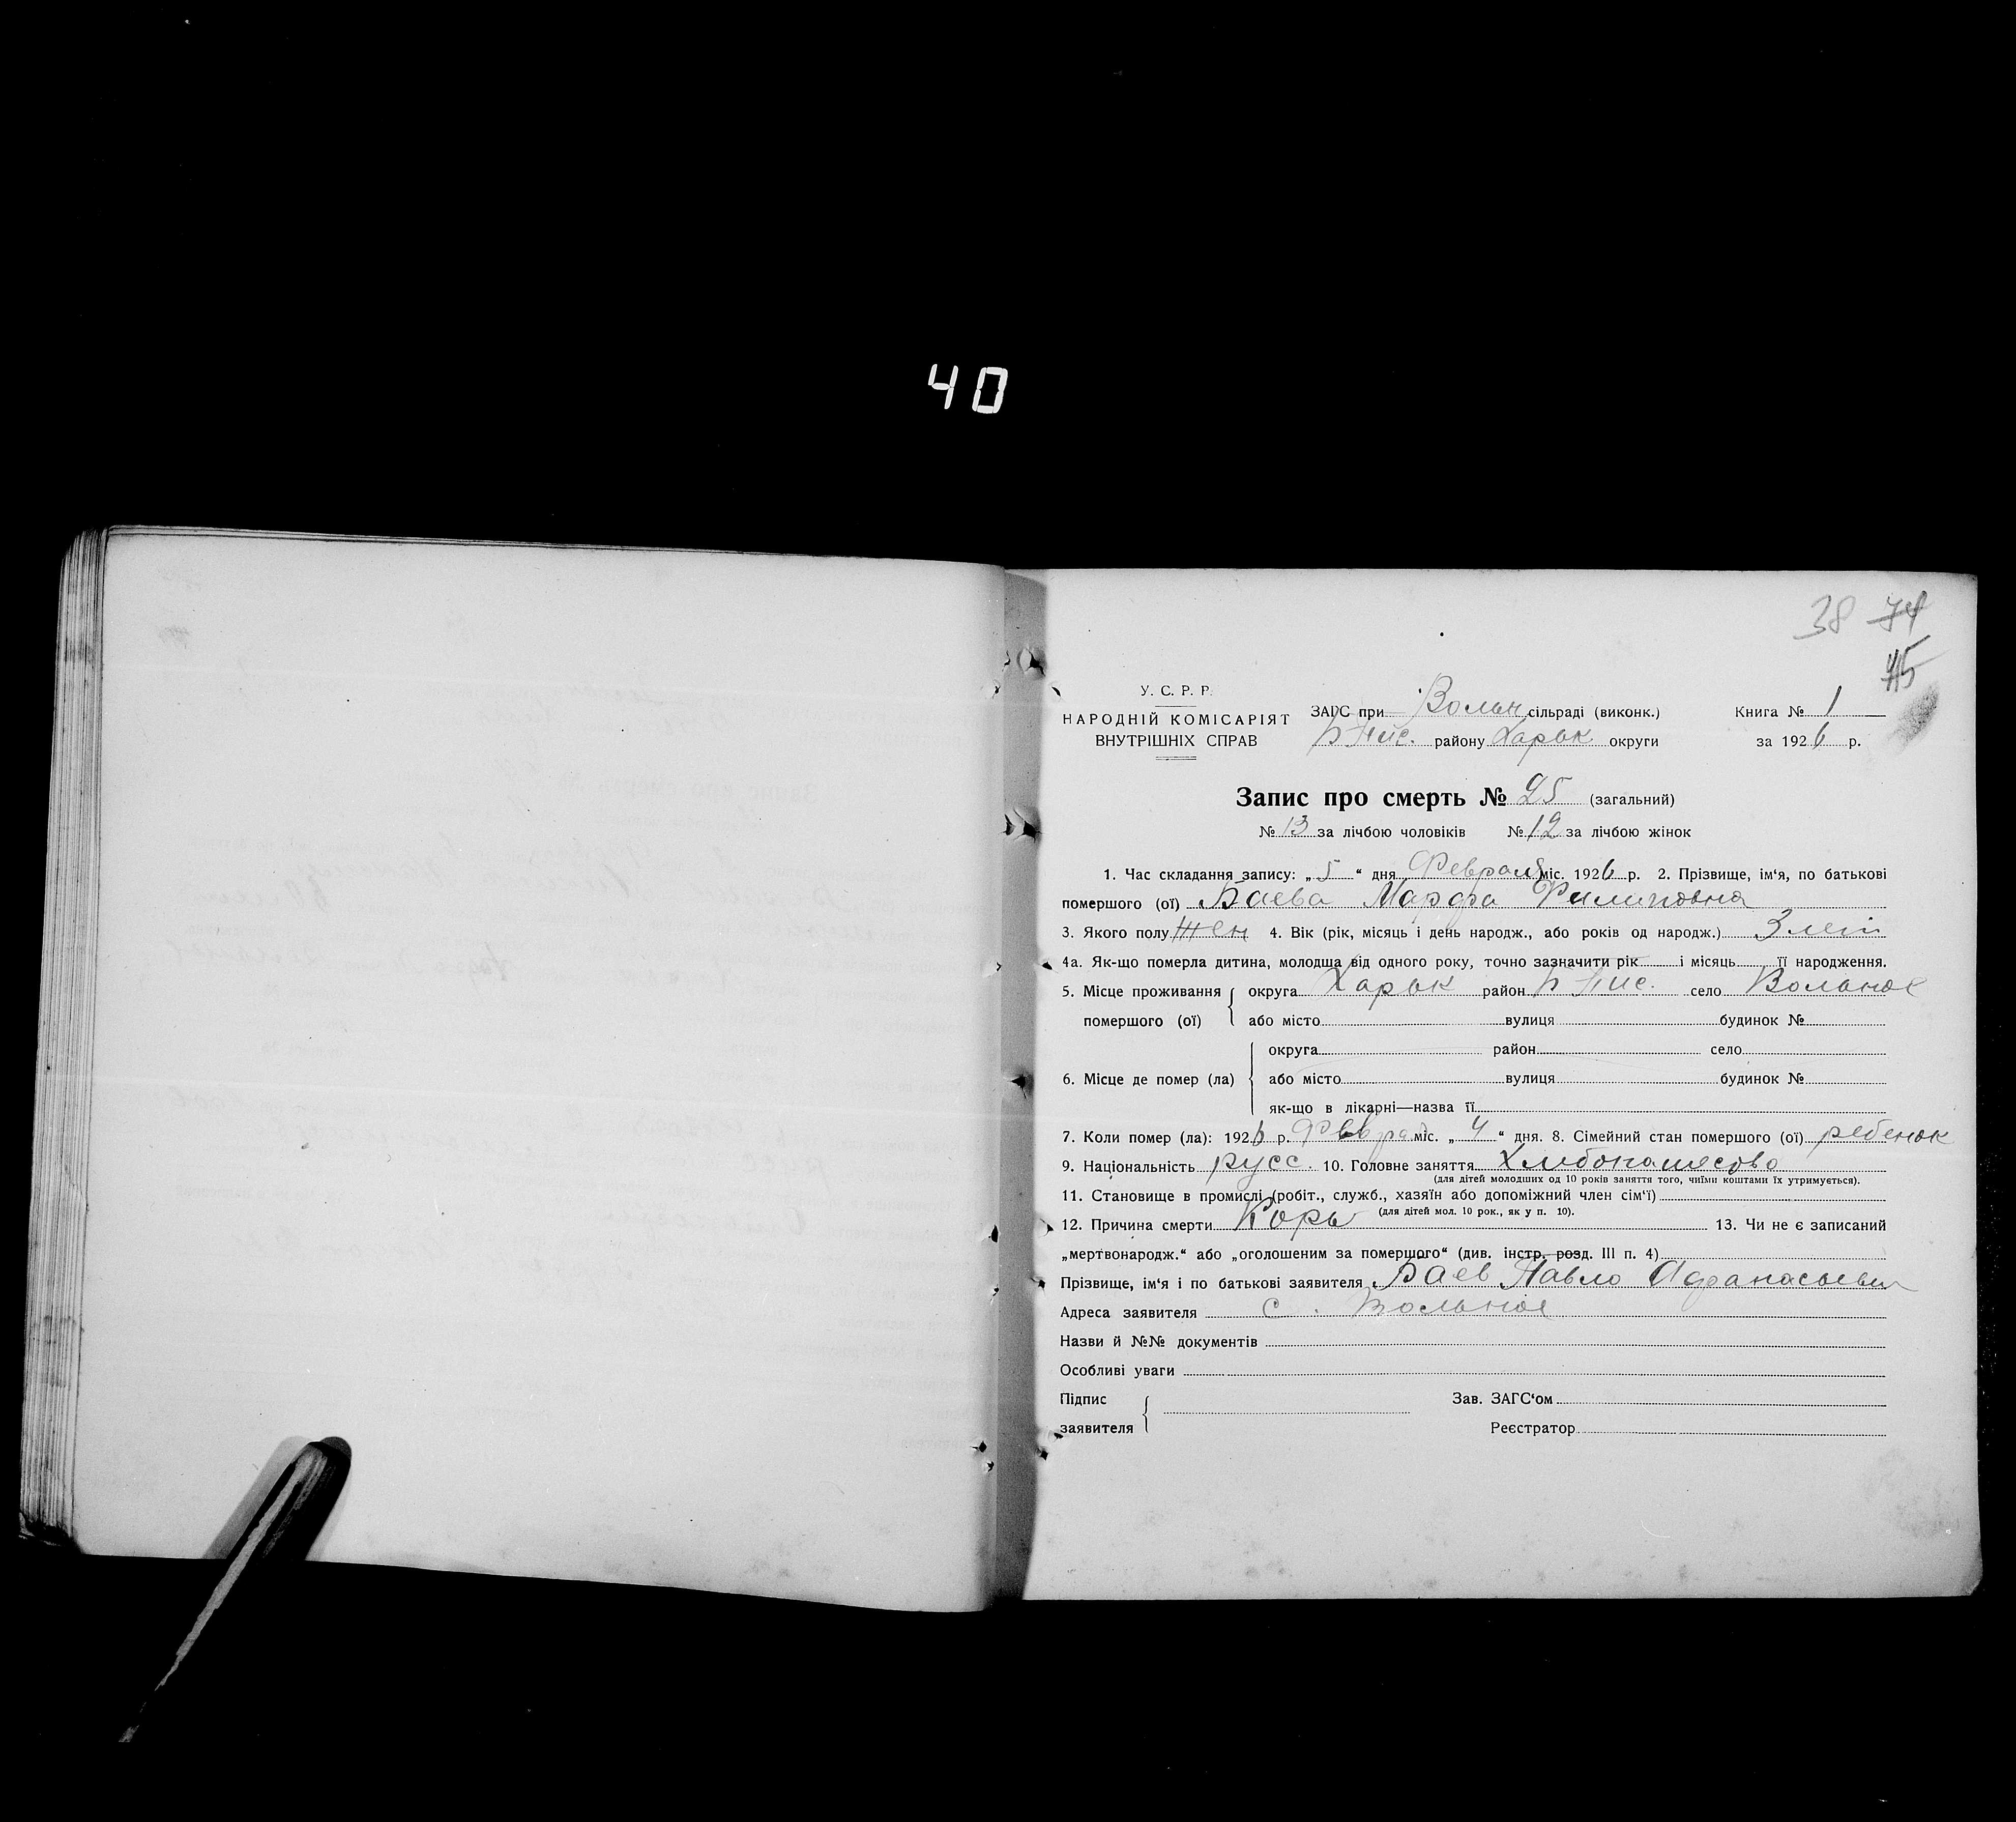 40
38 74
45
У. С. Р. Р.
НАРОДНІЙ КОМІСАРІЯТ
ВНУТРІШНІХ СПРАВ
ЗАГС при Вольн сільраді (виконк.)
Б Пис. району Харьк округи
Книга № 1
за 1926 р.
Запис про смерть № 25 (загальний)
№ 13 за лічбою чоловіків № 12 за лічбою жінок
1. Час складання запису: „ 5 “ дня Февраля міс. 1926 р. 2. Прізвище, ім‘я, по батькові
помершого (ої) Баева Марфа Филиповна
3. Якого полу жен 4. Вік (рік, місяць і день народж., або років од народж.) 3 лет
4а. Як-що померла дитина, молодша від одного року, точно зазначити рік і місяць її народження.
5. Місце проживання округа Харьк район Б Пис. село Вольное
помершого (ої) або місто вулиця будинок №
округа район село
6. Місце де помер (ла) або місто вулиця будинок №
як-що в лікарні—назва її
7. Коли помер (ла): 1926 р. Февраля міс. „ 4 “ дня. 8. Сімейний стан помершого (ої) ребенок
9. Національність русс. 10. Головне заняття
(для дітей молодших од 10 років заняття того, чиїми коштами їх утримується).
11. Становище в промислі (робіт., служб., хазяїн або допоміжний член сім‘ї)
(для дітей мол. 10 рок., як у п. 10).
12. Причина смерти Корь 13. Чи не є записаний
„мертвонародж.“ або „оголошеним за помершого“ (див. інстр. розд. III п. 4)
Прізвище, ім‘я і по батькові заявителя Баев Павло Афанасьевич
Адреса заявителя с. Вольное
Назви й №№ документів
Особливі уваги
Підпис
заявителя
Зав. ЗАГС‘ом
Реєстратор